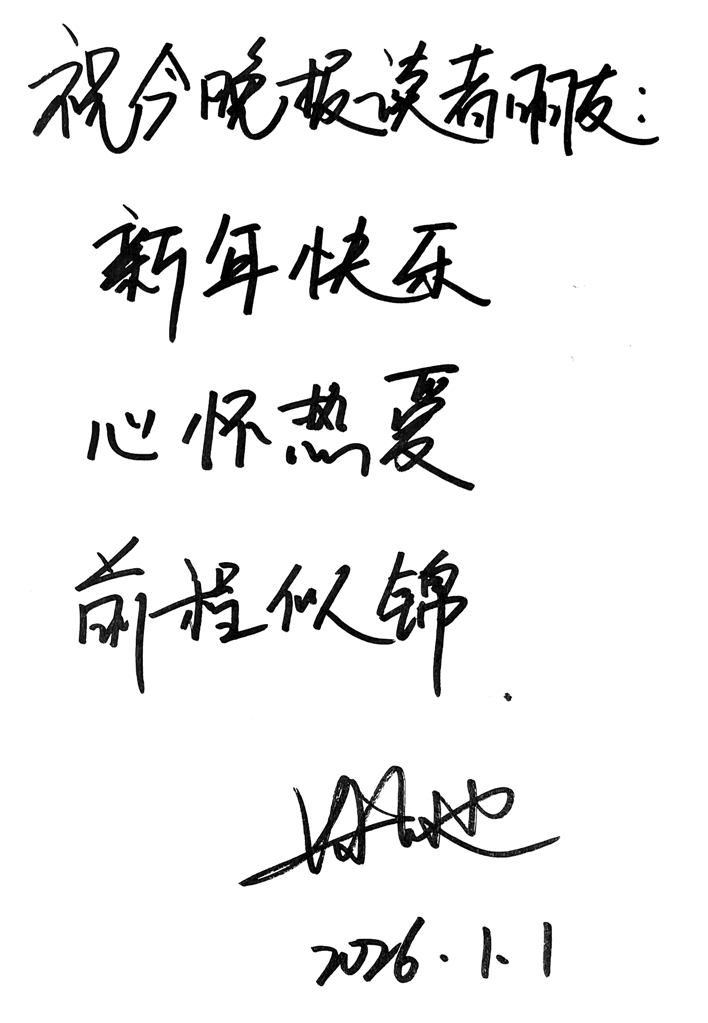 祝今晚报读者朋友:
新年快乐
心怀热爱
前程似锦.
2026.1.1